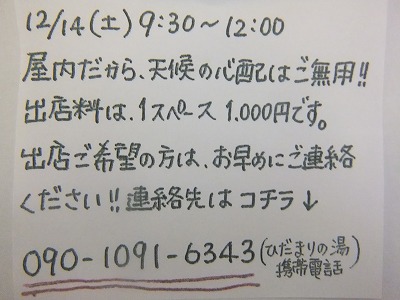 12/14(土) 9:30～12:00
屋内だから、天候の心配はご無用!!
出店料は、1スペース 1.000円です。
出店ご希望の方は、お早めにご連絡
ください!! 連絡先は コチラ↓
090-1091-6343(ひだまりの湯
携帯電話)